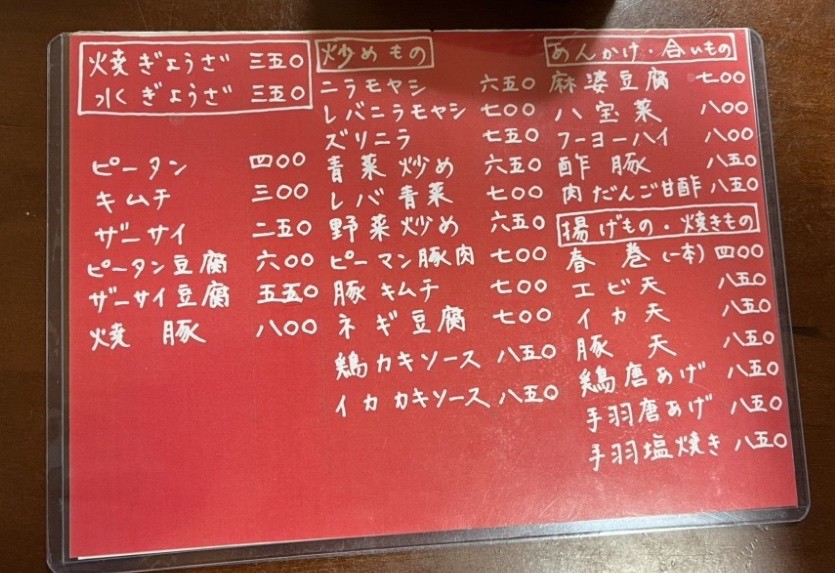 焼ぎょうざ 三五〇
水ぎょうざ 三五〇
ピータン 四〇〇
キムチ 三〇〇
ザーサイ 二五〇
ピータン豆腐 六〇〇
ザーサイ豆腐 五五〇
焼豚 八〇〇
炒めもの
ニラモヤシ 六五〇
レバニラモヤシ 七〇〇
ズリニラ 七五〇
青菜炒め 六五〇
レバ青菜 七〇〇
野菜炒め 六五〇
ピーマン豚肉 七〇〇
豚キムチ 七〇〇
ネギ豆腐 七〇〇
鶏カキソース 八五〇
イカカキソース 八五〇
あんかけ・合いもの
麻婆豆腐 七〇〇
八宝菜 八〇〇
フーヨーハイ 八〇〇
酢豚 八五〇
肉だんご甘酢 八五〇
揚げもの・焼きもの
春巻(一本) 四〇〇
エビ天 八五〇
イカ天 八五〇
豚天 八五〇
鶏唐あげ 八五〇
手羽唐あげ 八五〇
手羽塩焼き 八五〇